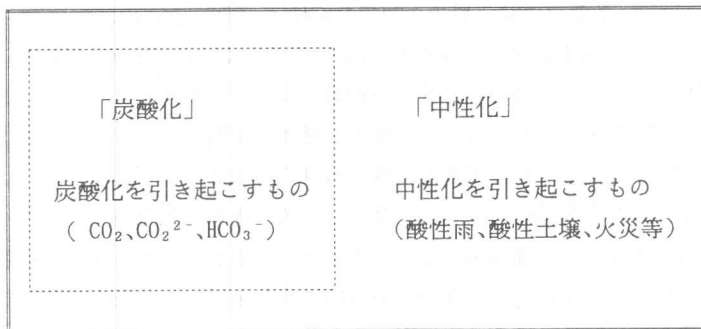 「炭酸化」
炭酸化を引き起こすもの
( CO₂、CO₂²⁻、HCO₃⁻)
「中性化」
中性化を引き起こすもの
(酸性雨、酸性土壌、火災等)